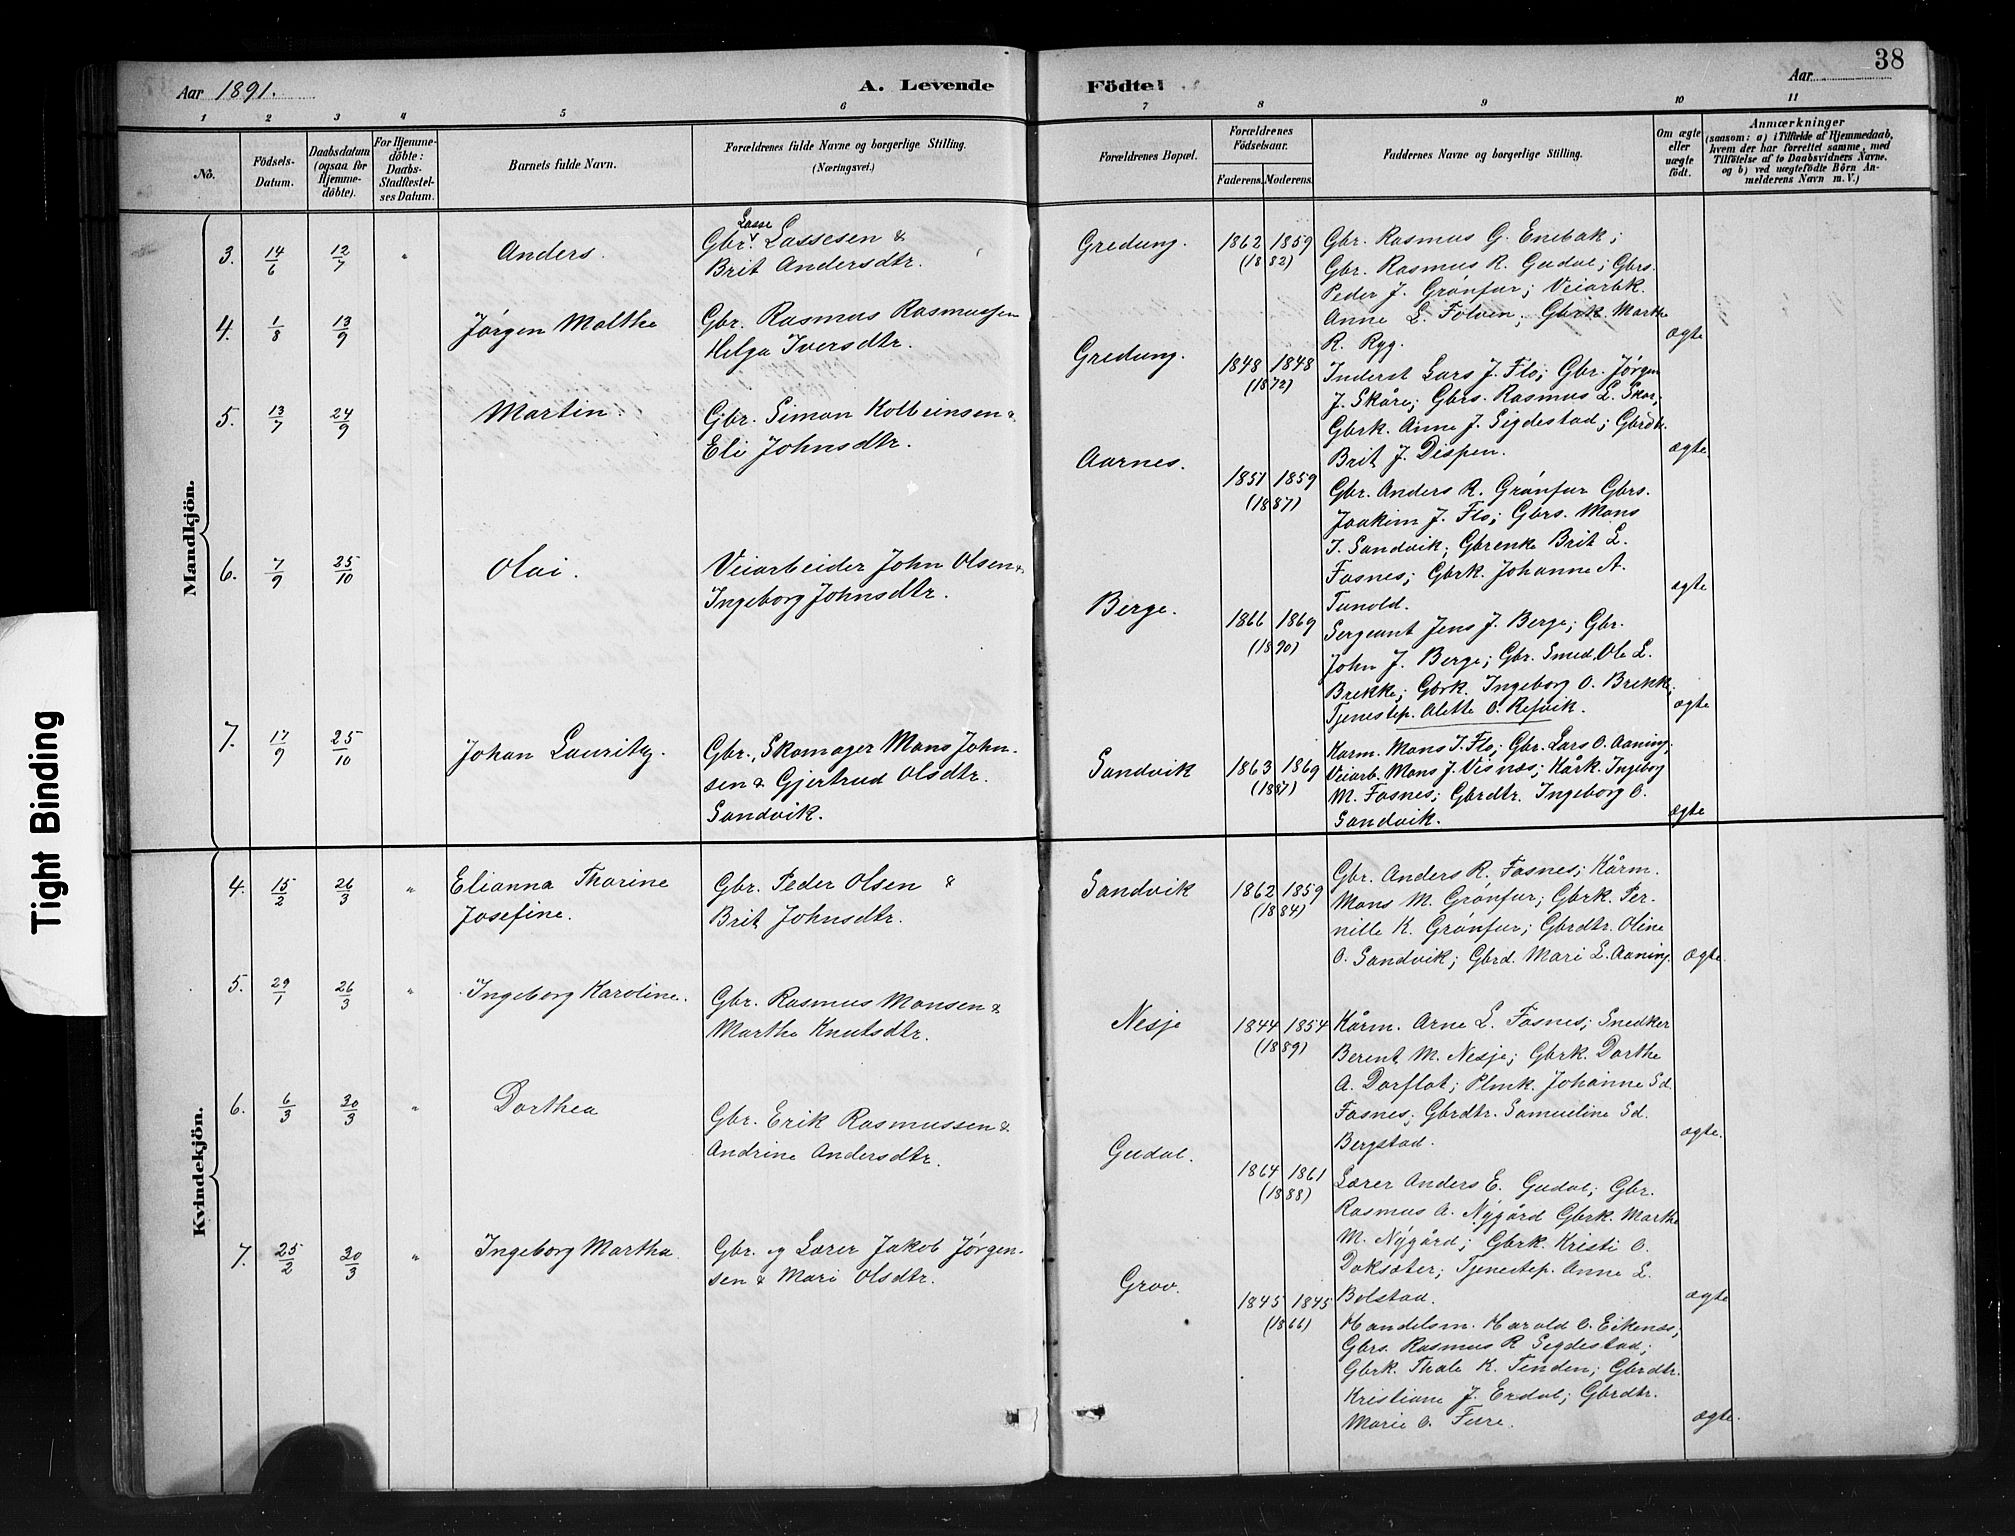 38
Aar 1891.
A. Levende
Födte!
Aar
1 2 3 4 5 6 7 8 9 10 11
No.
Födsels-
Datum.
Daabsdatum
(ogsaa for
Hjemme-
döbte).
For Hjemme-
döbte:
Daabs-
Stadfæstel-
ses Datum.
Barnets fulde Navn.
Forældrenes fulde Navne og borgerlige Stilling.
(Næringsvei.)
Forældrenes Bopæl.
Forældrenes
Födselsaar.
Faderens. Moderens.
Faddernes Navne og borgerlige Stilling.
Om ægte
eller
uægte
födt.
Anmærkninger
(saasom: a) i Tilfælde af Hjemmedaab,
hvem der har forrettet samme, med
Tilföielse af to Daabsvidners Navne.
og b) ved uægtefödte Börn An-
melderens Navn m. V.)
Mandkjön.
3. 14/6 12/7 " Anders.
Lasse
Gbr. Lassesen &
Brit Andersdtr.
Gredung. 1862 1859
(1882)
Gbr. Rasmus G. Enebak;
Gbr. Rasmus R. Gudal; Gbrs.
Peder J. Grønfur; Veiarbk.
Anne L. Folven; Gbrk Marthe
R. Ryg.
ægte
4. 1/8 13/9 Jørgen Malthe
Gbr. Rasmus Rasmussen
Helga Iversdtr.
Gredung. 1848 1848
(1872)
Inderst Lars J. Flo; Gbr. Jørgen
J. Skåre; Gbrs. Rasmus L. Skar,
Gbrk. Anne J. Sigdestad; Gbrdtr.
Brit J. Dispen.
ægte.
5. 13/7 24/9 Martin.
Gbr. Simon Kolbeinsen &
Eli Johnsdtr.
Aarnes. 1851 1859
(1887)
Gbr. Anders R. Grønfur Gbrs.
Joakim J. Flo; Gbrs. Mons
J. Sandvik; Gbrenke Brit L.
Fosnes; Gbrk. Johanne A.
Tunold.
ægte
6. 7/9 25/10 Olai.
Veiarbeider John Olsen &
Ingeborg Johnsdtr.
Berge. 1866 1869
(1890)
Sergeant Jens J. Berge; Gbr.
John J. Berge; Gbr. Smed, Ole L.
Brekke; Gbrk. Ingeborg O. Brekke;
Tjenestep. Olette O. Refvik.
ægte
7. 17/9 25/10 Johan Lauritz.
Gbr., Skomager Mons John-
sen & Gjertrud Olsdtr.
Sandvik.
Sandvik 1863 1869
(1887)
Karm. Mons J. Flo; Gbr. Lars O. Aaning;
Veiarb. Mons J. Visnæs; Kårk. Ingebor
M. Fosnes; Gbrdtr. Ingeborg O.
Sandvik.
ægte
Kvindekjön.
4. 15/2 26/3 " Elianna Thorine
Josefine.
Gbr. Peder Olsen &
Brit Johnsdtr.
Sandvik 1862 1859
(1884)
Gbr. Anders R. Fosnes; Kårm.
Mons M. Grønfur; Gbrk. Per-
nille K. Grønfur; Gbrdtr. Oline
O. Sandvik; Gbrd. Mari L. Aaning.
ægte.
5. 29/1 26/3 " Ingeborg Karoline.
Gbr. Rasmus Monsen &
Marthe Knutsdtr.
Nesje 1844 1854
(1889)
Kårm. Arne L. Fosnes; Snedker
Berent M. Nesje; Gbrk. Dorthe
A. Dorflot; Plmk. Johanne Sd.
Fosnes; Gbrdtr. Samueline Sd.
Bergstad.
ægte.
6. 6/3 30/3 " Dorthea
Gbr. Erik Rasmussen &
Andrine Andersdtr.
Gudal. 1864 1861
(1888)
Lærer Anders E. Gudal; Gbr.
Rasmus A. Nygård Gbrk. Marthe
M. Nygård; Gbrk. Kristi O.
Doksæter; Tjenestep. Anne L.
Bolstad.
ægte
7. 25/2 30/3 " Ingeborg Martha.
Gbr. og Lærer Jakob Jørgen-
sen & Mari Olsdtr.
Grov. 1845 1845
(1866)
Handelsm. Harald O. Eikenæs;
Gbrs. Rasmus R Sigdestad;
Gbrk. Thale K. Tenden; Gbrdtr.
Kristiane J. Erdal; Gbrdtr.
Marie O. Fure.
ægte.
Tight Binding